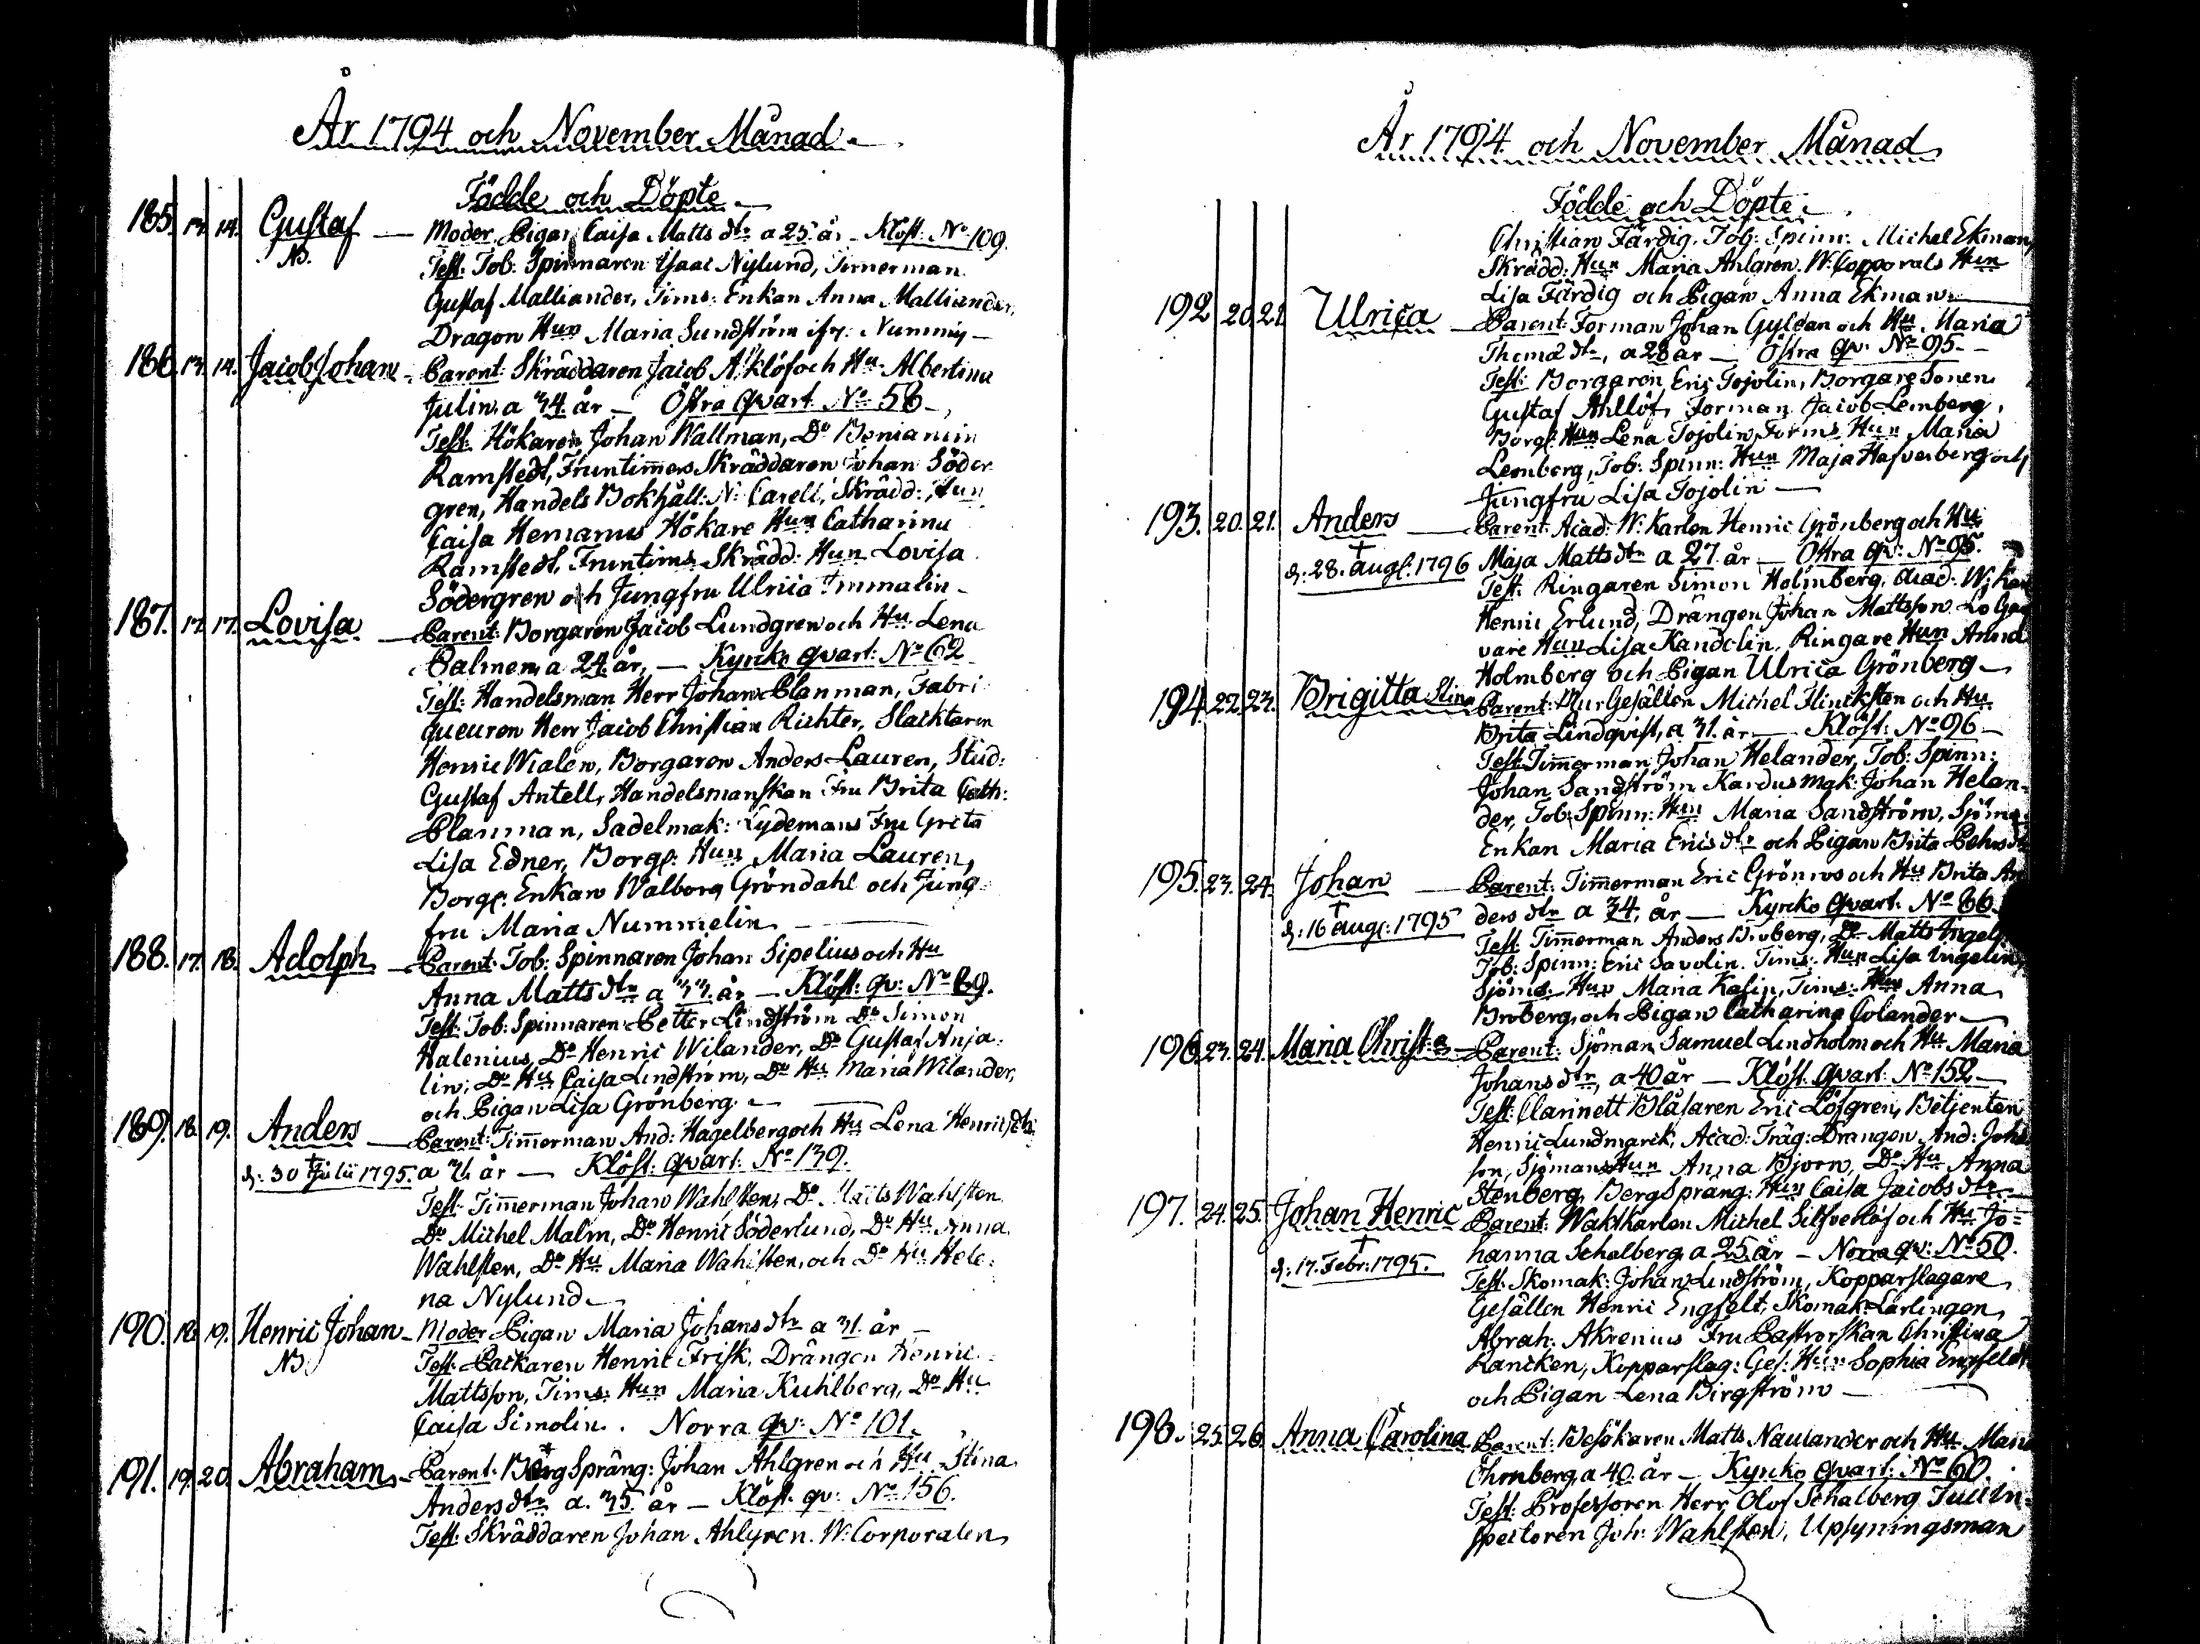 År 1794 och November Månad.
Födde och Döpte.
185. 13. 14. Gustaf — Moder Pigan Caisa Matts dtr a 25 år – Klöst: No 109.
NB. Test: Tob: Spinnaren Isaac Nylund, Timerman
Gustaf Malliander, Tims: Enkan Anna Malliander,
Dragon Hun Maria Sundström ifr: Nummis –
186. 13. 14. Jacob Johan – Parent: Skräddaren Jacob Åklöf och Hu Albertina
Julin a 34 år – Östra Qvart. No 58 –
Test: Hökaren Johan Wallman, Do Beniamin
Ramstedt, Fruntimers Skräddaren Johan Söder
gren, Handels Bokhåll: N: Carell, Skrädd: Hun
Caisa Hemanus Hökare Hun Catharina
Ramstedt, Fruntims Skrädd: Hun Lovisa
Södergren och Jungfru Ulrica Immalin –
187. 17. 17. Lovisa — Parent: Borgaren Jacob Lundgren och Hu Lena
Palmen a 24 år, — Kyrko qvart: No 62
Test: Handelsman Herr Johan Planman, Fabri
queuren Herr Jacob Christian Richter, Slacktaren
Henric Wialen, Borgaren Anders Lauren, Stud:
Gustaf Antell, Handelsmanskan Fru Brita Cath:
Planman, Sadelmak: Lydemans Fru Greta
Lisa Edner, Borgs: Hun Maria Lauren,
Borgs: Enkan Walborg Gröndahl och Jung
fru Maria Nummelin
188. 17. 18. Adolph — Parent: Tob: Spinnaren Johan Sipelius och Hu
Anna Matts dtr a 33 år — Klöst: qv: No 89.
Test: Tob: Spinnaren Petter Lindström Do Simon
Halenius, Do Henric Wilander, Do Gustaf Anja:
lin, Do Hu Caisa Lindström, Do Hu Maria Wilander,
och Pigan Lisa Grönberg.
189. 18. 19. Anders — Parent: Timmerman And: Hagelberg och Hu Lena Henrics dtr
† d: 30 Julii 1795. a 31 år — Klöst: qvart: No 139.
Test: Timmerman Johan Wahlsten, Do Matts Wahlsten
Do Michel Malm, Do Henric Söderlund, Do Hu Anna
Wahlsten, Do Hu Maria Wahlsten, och Do Hu Hele:
na Nylund
190. 18. 19. Henric Johan – Moder Pigan Maria Johans dtr a 31 år –
NB. Test: Packaren Henric Frisk, Drängen Henric
Mattsson, Tims: Hun Maria Kuhlberg, Do Hu
Caisa Simolin. Norra qv: No 101.
191. 19. 20. Abraham – Parent: Berg Spräng: Johan Ahlgren och Hu Stina
Anders dtr a. 35 år — Klöst: qv: No 156.
Test: Skräddaren Johan Ahlgren. W: Corporalen
År 1794. och November Månad
Födde och Döpte.
Christian Färdig. Tob: Spinn: Michel Ekman,
Skrädd: Hun Maria Ahlgren, W: Corporals Hun
Lisa Färdig och Pigan Anna Ekman.
192 20. 21. Ulrica — Parent: Forman Johan Gyldan och Hu Maria
Thoma dtr, a 28 år — Östra qv: No 95 –
Test: Borgaren Eric Tojolin, Borgare Sonen
Gustaf Ahllöf, Forman Jacob Lemberg,
Borgs: Hun Lena Tojolin, Forms Hun Maria
Lemberg, Tob: Spinn: Hun Maja Hafverberg och
Jungfru Lisa Tojolin —
193. 20. 21. Anders — Parent: Acad: W: Karlen Henric Grönberg och Hu
† d. 28. Augs. 1796 Maja Matts dtr a 27 år — Östra qv: No 95.
Test: Ringaren Simon Holmberg, Acad: W: Kar
Henric Erlund, Drängen Johan Mattsson Lo Gar
vare Hun Lisa Kandolin, Ringare Hun Anna
Holmberg och Pigan Ulrica Grönberg —
194. 22. 23. Brigitta Stina Parent: Mur Gesällen Michel Flincksten och Hu
Brita Lindqvist, a 31. år — Klöst: No 96 –
Test: Timmerman Johan Helander, Tob: Spinn:
Johan Sandström Kardusmak: Johan Helan
der, Tob: Spinn: Hun Maria Sandström, Sjöms
Enkan Maria Erics dtr och Pigan Brita Pehrs
195. 23. 24. Johan — Parent: Timmerman Eric Grönroos och Hu Brita An
† d: 16 Augs: 1795 ders dtr a 34. år — Kyrcko Qvart: No 66.
Test: Timmerman Anders Broberg, Do Matts
Tob: Spinn: Eric Savolin. Tims: Hun Lisa Ingelin,
Sjöms Hun Maria Kasin, Tims: Hun Anna
Broberg, och Pigan Catharina Colander —
196. 23. 24. Maria Christ: — Parent: Sjöman Samuel Lindholm och Hu Maria
Johans dtr, a 40 år — Klöst: Qvart: No 152 —
Test: Clarinett Blåsaren Eric Löfgren, Betjenten
Henric Lundmarck, Acad: Träg: Drängen And: Johs
son, Sjömans Hun Anna Bjorn, Do Hu Anna
Stenberg, Berg Spräng: Hun Caisa Jacobs dtr
197. 24. 25. Johan Henric Parent: Waktkarlen Michel Silfverlöf och Hu Jo=
† d: 17. Febr: 1795. hanna Schalberg a 25 år — Norra qv: No 50.
Test: Skomak: Johan Lindström, Kopparslagare
Gesällen Henric Engfelt, Skomak: Lärlingen
Abrah: Akrenius Fru Pastrorskan Christina
Rancken, Kopparslag: Ges: Hun Sophia Engfeldt
och Pigan Lena Birgström —
198. 25. 26. Anna Carolina Parent: Besökaren Matts Naulander och Hu Maria
Öhrnberg a 40. år — Kyrcko Qvart: No 60.
Test: Professoren Herr Olof Schalberg Tull In:
spectoren Joh: Wahlsten, Upsyningsman